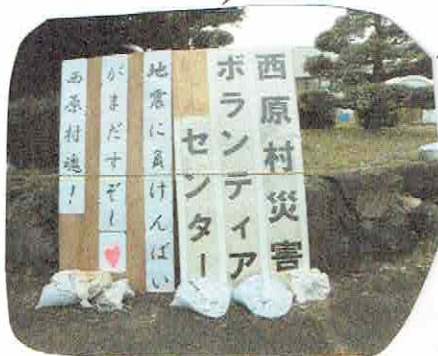 西原村災害
ボランティア
センター
地震に負けんばい
がまだすぞし
西原村魂！